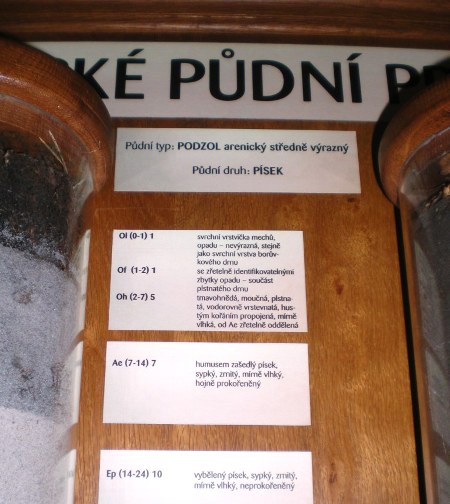 KÉ PŮDNÍ PR
Půdní typ: PODZOL arenický středně výrazný
Půdní druh: PÍSEK
Ol (0-1) 1 svrchní vrstvička mechů,
opadu – nevýrazná, stejně
jako svrchní vrstva borův-
kového drnu
Of (1-2) 1 se zřetelně identifikovatelnými
zbytky opadu – součást
plstnatého drnu
Oh (2-7) 5 tmavohnědá, moučná, plstna-
tá, vodorovně vrstevnatá, hus-
tým kořáním propojená, mírně
vlhká, od Ae zřetelně oddělená
Ae (7-14) 7 humusem zašedlý písek,
sypký, zrnitý, mírně vlhký,
hojně prokořeněný
Ep (14-24) 10 vybělený písek, sypký, zrnitý,
mírně vlhký, neprokořeněný